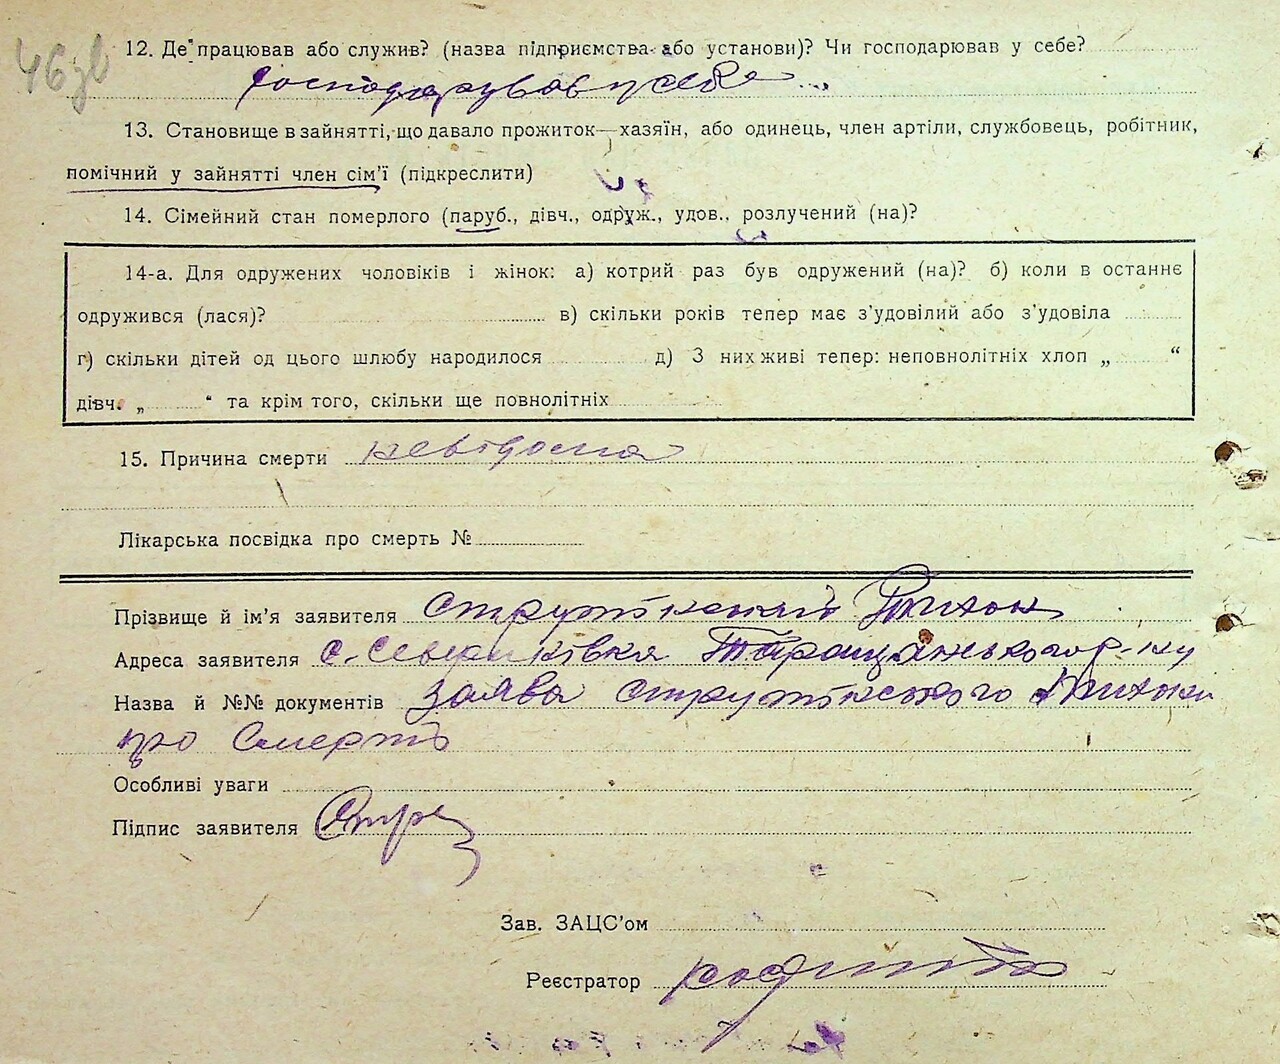 46 зв
12. Де працював або служив? (назва підприємства або установи)? Чи господарював у себе?
господарував у себе
13. Становище в зайнятті, що давало прожиток—хазяїн, або одинець, член артіли, службовець, робітник,
помічний у зайнятті член сім'ї (підкреслити)
14. Сімейний стан померлого (паруб., дівч., одруж., удов., розлучений (на)?
14-а. Для одружених чоловіків і жінок: а) котрий раз був одружений (на)? б) коли в останнє
одружився (лася)? в) скільки років тепер має з'удовілий або з'удовіла
г) скільки дітей од цього шлюбу народилося д) З них живі тепер: неповнолітніх хлоп „ “
дівч. „ “ та крім того, скільки ще повнолітніх
15. Причина смерти невідома
Лікарська посвідка про смерть №
Прізвище й ім'я заявителя
Адреса заявителя с. Северинівка Таращанського р-ну
Назва й №№ документів заява
про смерть
Особливі уваги
Підпис заявителя Стру
Зав. ЗАЦС'ом
Реєстратор